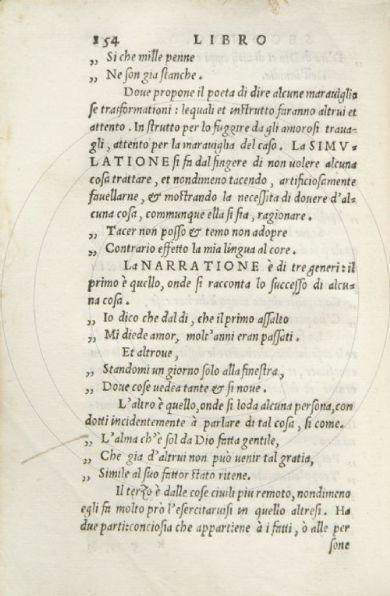 154 LIBRO
„ Si che mille penne
„ Ne son gia stanche.
Doue propone il poeta di dire alcune marauiglio
se trasformationi: lequali et instrutto faranno altrui et
attento. Instrutto per lo fuggire da gli amorosi traua-
gli, attento per la marauiglia del caso. La SIMV-
LATIONE si fa dal fingere di non uolere alcuna
cosa trattare, et nondimeno tacendo, artificiosamente
fauellarne, & mostrando la necessita di douere d'al-
cuna cosa, communque ella si sia, ragionare.
„ Tacer non posso & temo non adopre
„ Contrario effetto la mia lingua al core.
La NARRATIONE è di tre generi: il
primo è quello, onde si racconta lo successo di alcu-
na cosa.
„ Io dico che dal dì, che il primo assalto
„ Mi diede amor, molt'anni eran passati.
Et altroue,
„ Standomi un giorno solo alla finestra,
„ Doue cose uedea tante & si noue.
L'altro è quello, onde si loda alcuna persona, con
dotti incidentemente à parlare di tal cosa, si come.
„ L'alma ch'è sol da Dio fatta gentile,
„ Che gia d'altrui non può uenir tal gratia,
„ Simile al suo fattor stato ritene.
Il terzo è dalle cose ciuili piu remoto, nondimeno
egli fa molto prò l'esercitaruisi in quello altresi. Ha
due parti: conciosia che appartiene à i fatti, ò alle per
sone